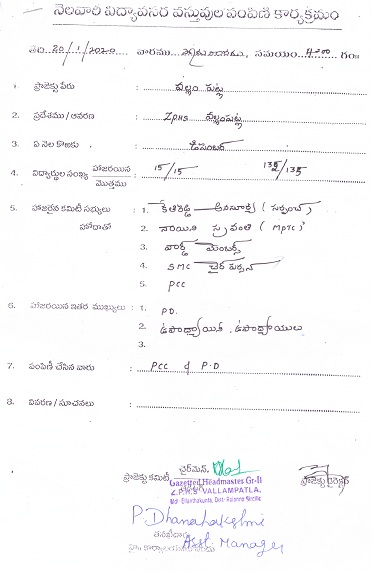 నెలవారి విద్యావసర వస్తువుల పంపిణి కార్యక్రమం
తేది 20/1/2020 వారము సోమవారము, సమయం 4-00 గం
1. ప్రాజెక్టు పేరు : వల్లం పట్ల
2. ప్రదేశము / ఆవరణ : ZPHS వల్లంపట్ల
3. ఏ నెల కొరకు : డిసెంబర్
4. విద్యార్థుల సంఖ్య హాజరయిన 15/15 135/135
మొత్తము
5. హాజరైన కమిటీ సభ్యులు : 1. కేతిరెడ్డి అనసూర్య (సర్పంచ్)
హోదాతో 2. స్రవంతి (MPTC)
3. వార్డ్ మెంబర్స్
4. SMC చైర్ పర్సన్
5. PCC
6. హాజరయిన ఇతర ముఖ్యులు : 1. P.D.
2. ఉపాధ్యాయిని, ఉపాధ్యాయులు
3.
7. పంపిణీ చేసిన వారు : PCC & P.D
8. వివరణ / సూచనలు :
చైర్‌మెన్,
ప్రాజెక్టు కమిటీ
ప్రాజెక్టు డైరెక్టర్
Gazetted Headmaster Gr-II
Z.P.H.S VALLAMPATLA,
Mdl: Ellanthakunta, Dist: Rajanna Sircilla
P. Dhanalakshmi
Asst. Manager